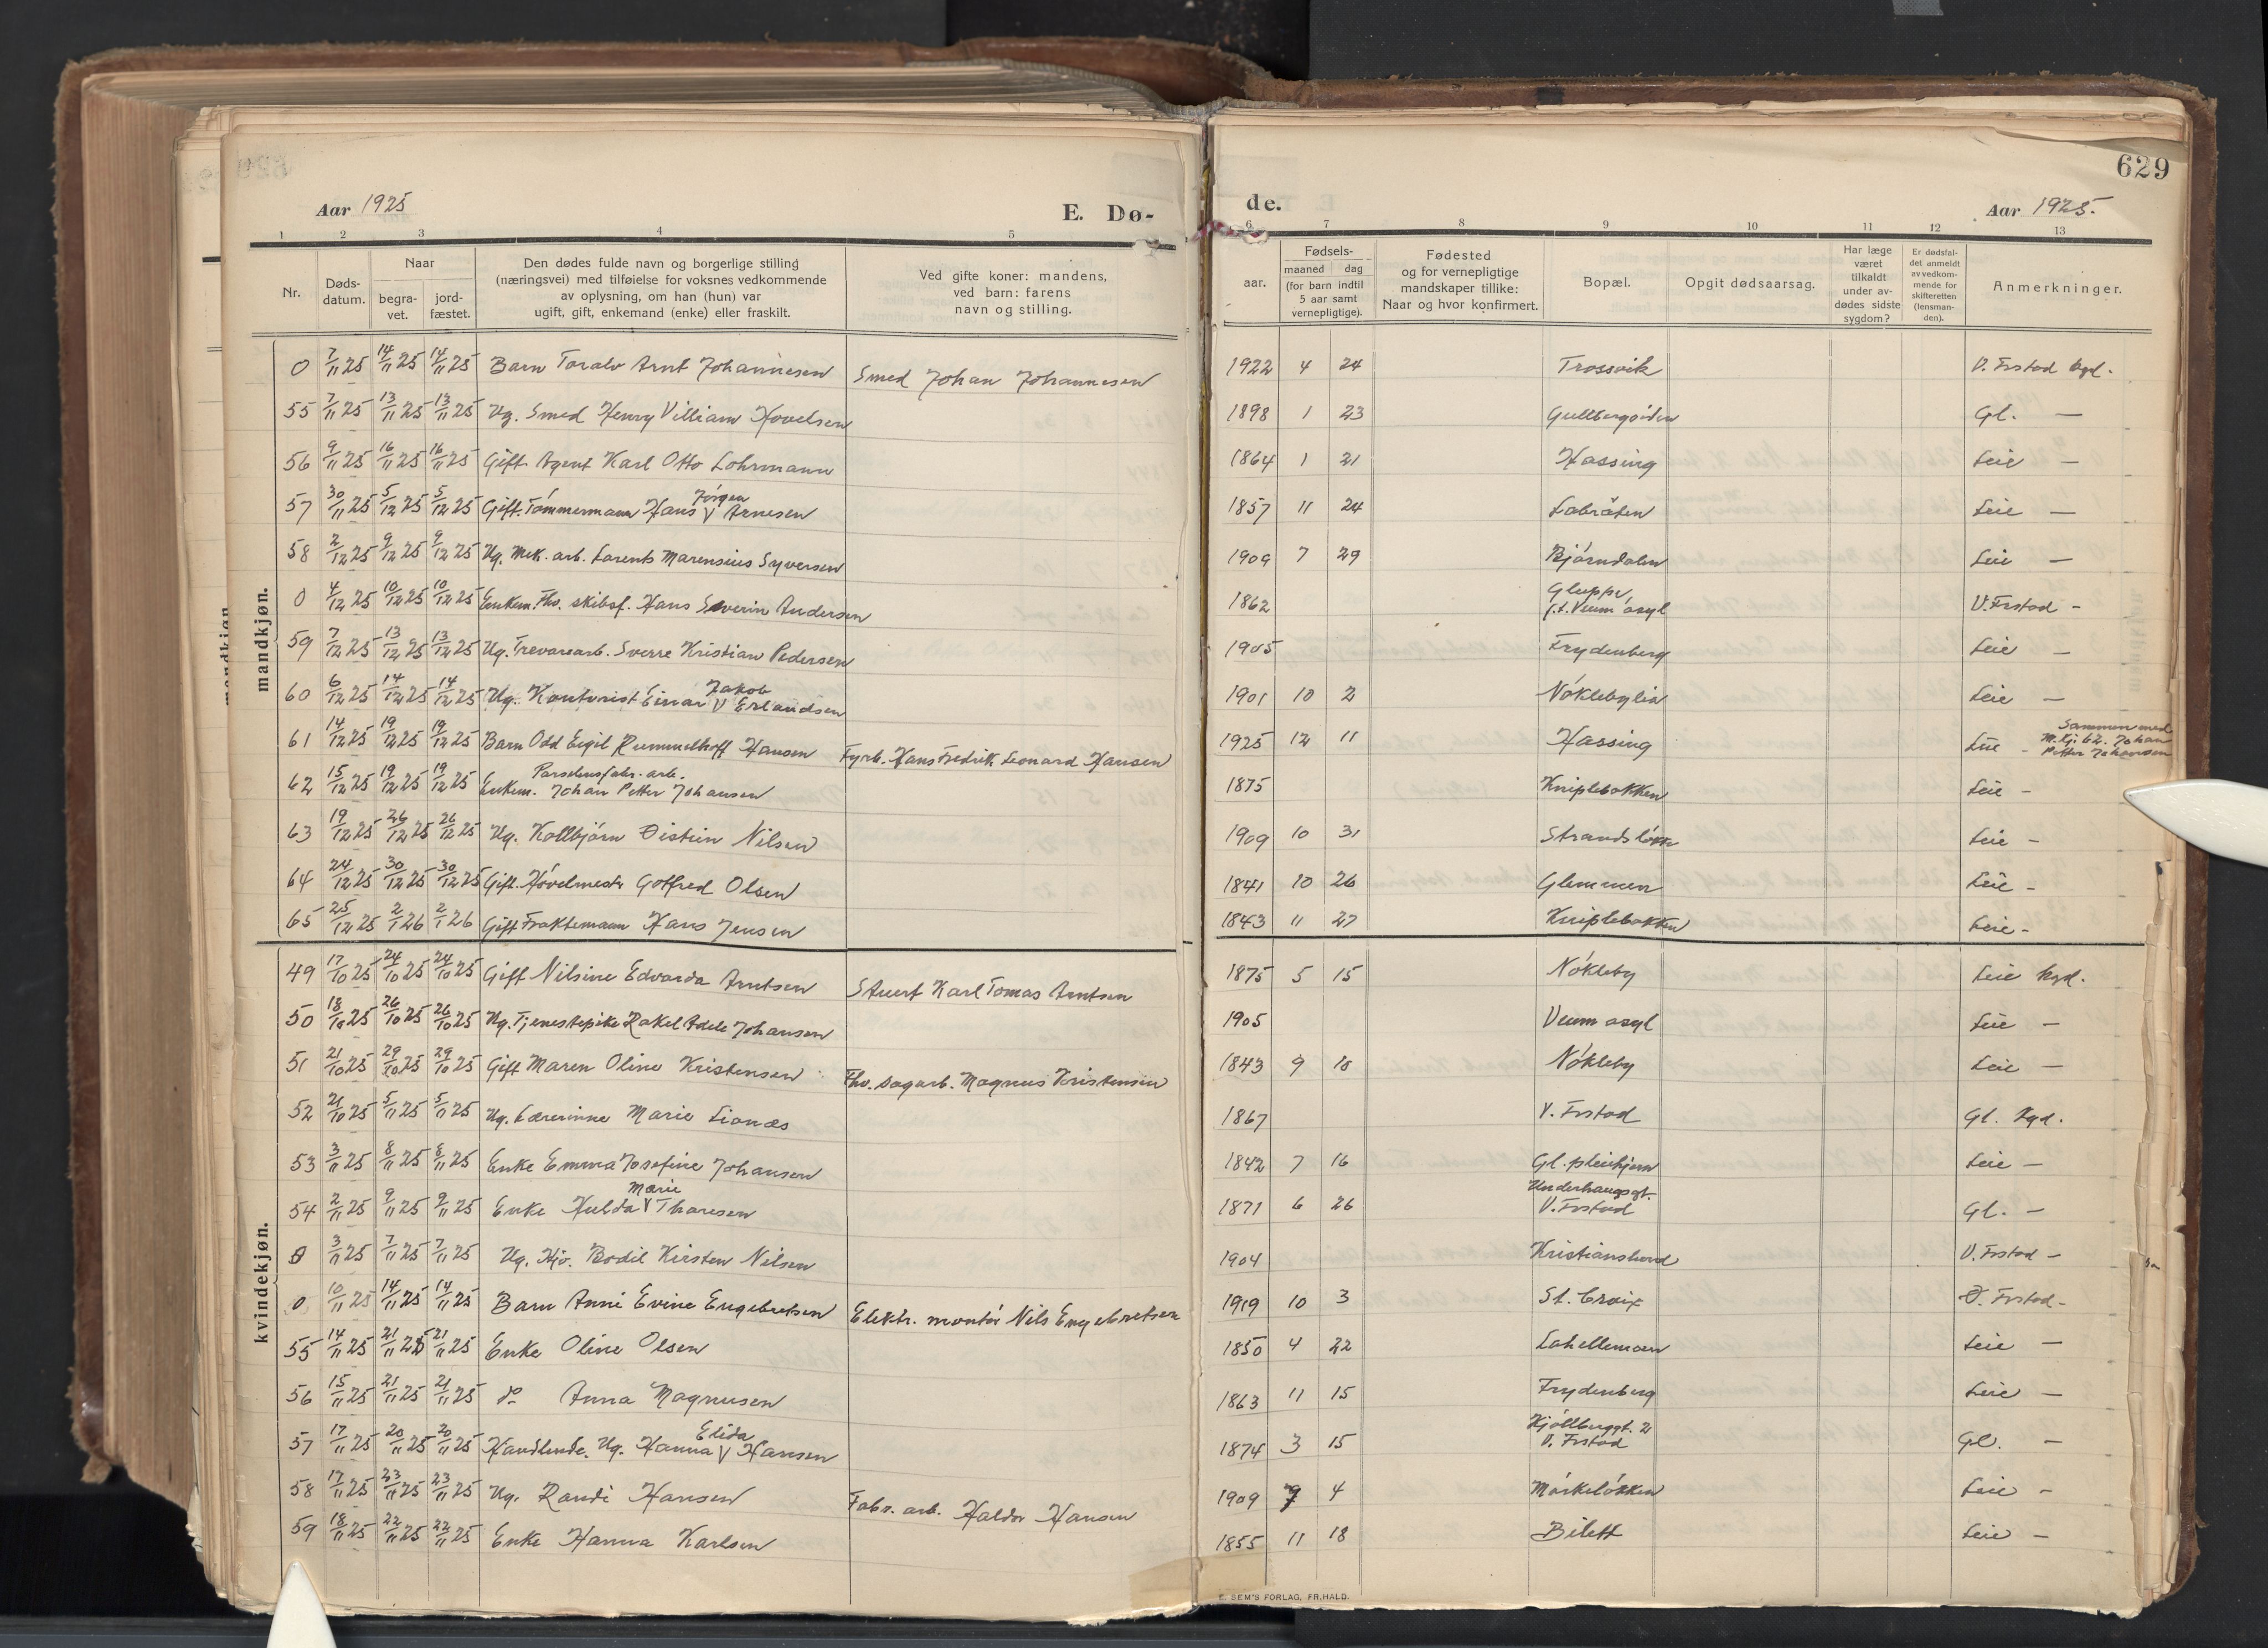 629
Aar 1925
E. Dø-
de.
Aar 1925.
1 2 3 4 5 6 7 8 9 10 11 12 13
Nr.
Døds-
datum.
Naar
begra-
vet.
jord-
fæstet.
Den dødes fulde navn og borgerlige stilling
(næringsvei) med tilføielse for voksnes vedkommende
av oplysning, om han (hun) var
ugift, gift, enkemand (enke) eller fraskilt.
Ved gifte koner: mandens,
ved barn: farens
navn og stilling.
Fødsels-
aar.
maaned dag
(for barn indtil
5 aar samt
vernepligtige).
Fødested
og for vernepligtige
mandskaper tillike:
Naar og hvor konfirmert.
Bopæl.
Opgit dødsaarsag.
Har læge
været
tilkaldt
under av-
dødes sidste
sygdom?
Er dødsfal-
det anmeldt
av vedkom-
mende for
skifteretten
(lensman-
den).
Anmerkninger.
mandkjøn.
mandkjøn.
0 7/11 25 14/11 25 14/11 25 Barn Toralv Arnt Johannesen Smed Johan Johannesen 1922 4 24 Trossvik V. Frstad kgd.
55 7/11 25 13/11 25 13/11 25 Ug. Smed Henry Villiam Hovelsen 1898 1 23 Gl. —
56 9/11 25 16/11 25 16/11 25 Gift Agent Karl Otto Lohrmann 1864 1 21 Hassing Leie —
Jørgen
57 30/11 25 5/12 25 5/12 25 Gift. Tømmermann Hans V Arnesen 1857 11 24 Labråten Leie —
58 2/12 25 9/12 25 9/12 25 Ug. Mek. arb. Lorents Marensius Syversen 1909 7 29 Bjørndalen Leie —
Gluppe,
0 4/12 25 10/12 25 10/12 25 Enkem. Fhv. skibsf. Hans Severin Andersen 1862 f.t. Veum asyl V. Frstad -
59 7/12 25 13/12 25 13/12 25 Ug. Trevarearb. Sverre Kristian Pedersen 1905 Frydenberg Leie —
Jakob
60 6/12 25 14/12 25 14/12 25 Ug. Kontorist Einar V Erlandsen 1901 10 2 Nøklebylia Leie —
61 14/12 25 19/12 25 19/12 25 Barn Odd Eigil Rummelhoff Hansen Fyrb. Hans Fredrik Leonard Hansen 1925 12 11 Hassing Leie - Sammen med
M.kj. 62. Johan
Petter Johansen
62 15/12 25 19/12 25 19/12 25 Enkem. Johan Petter Johansen 1875 Kniplebakken Leie -
63 19/12 25 26/12 25 26/12 25 Ug. Kollbjørn Øistein Nilsen 1909 10 31 Leie -
64 24/12 25 30/12 25 30/12 25 Gift. Høvelmestr Gotfred Olsen 1841 10 26 Glemmen Leie -
65 25/12 25 2/1 26 2/1 26 Gift Fraktemann Hans Jensen 1843 11 27 Kniplebakken Leie -
kvindekjøn.
49 17/10 25 24/10 25 24/10 25 Gift Nilsine Edvarda Arntsen Stuert Karl Tomas Arntsen 1875 5 15 Nøkleby Leie kgd.
50 18/10 25 26/10 25 26/10 25 Ug. Tjenestepike Rakel Adele Johansen 1905 Veum asyl Leie —
51 21/10 25 29/10 25 29/10 25 Gift Maren Oline Kristensen Fhv. sagarb. Magnus Kristensen 1843 9 18 Nøkleby Leie —
52 21/10 25 5/11 25 5/11 25 Ug. Lærerinne Marie Lianæs 1867 V. Frstad Gl. kgd.
53 3/11 25 8/11 25 8/11 25 Enke Emma Josefine Johansen 1842 7 16 Gl. pleiehjem Leie —
Marie Underhaugsgt.
54 2/11 25 9/11 25 9/11 25 Enke Hulda V Thoresen 1871 6 26 V. Frstad Gl. —
0 3/11 25 7/11 25 7/11 25 Ug. Hjv. Bodil Kirsten Nilsen 1904 Kristianslund V. Frstad —
0 10/11 25 14/11 25 14/11 25 Barn Anni Evine Engebretsen Elektr. montør Nils Engebretsen 1919 10 3 St. Croix V. Frstad -
55 14/11 25 21/11 25 21/11 25 Enke Oline Olsen 1850 4 22 Lahellemoen Leie —
56 15/11 25 21/11 25 21/11 25 do Anna Magnusen 1863 11 15 Frydenberg Leie —
Elida Kjølberggt. 2
57 17/11 25 20/11 25 20/11 25 Handlende. Ug. Hanna V Hansen 1874 3 15 V. Frstad Gl. —
58 17/11 25 23/11 25 23/11 25 Ug. Randi Hansen Fabr. arb. Haldor Hansen 1909 4 Mørkeløkken Leie -
59 18/11 25 22/11 25 22/11 25 Enke Hanna Karlsen 1855 11 18 Bilett Leie —
E. SEM'S FORLAG, FR.HALD.